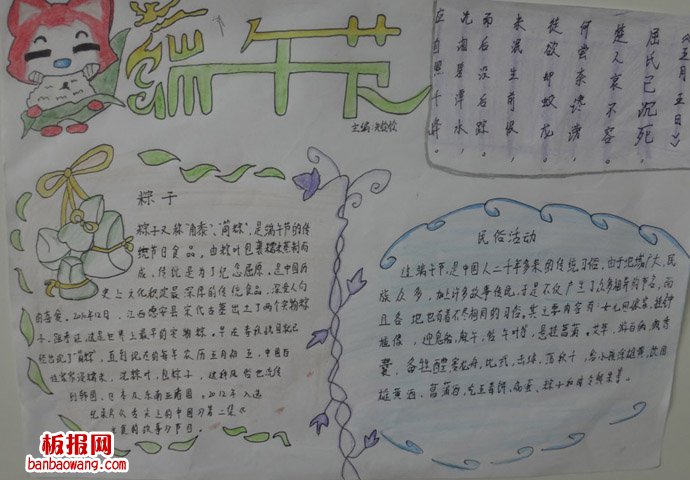 端午节
主编:
《五月五日》
屈氏已沉死,
楚人哀不容。
何尝奈谗谤,
徒欲却蛟龙。
未泯生前恨,
没后踪。
碧潭水,
应自照千峰。
粽子
粽子又称"角黍"、"筒粽",是端午节的传
统节日食品,由粽叶包裹糯米蒸制而
成,传说是为了纪念屈原,是中国历
史上文化积淀最深厚的传统食品,深受人们
的喜食。2010年12月,江西德安县宋代古墓出土了两个实物粽
子,据考证,这是世界上最早的实物粽。早在春秋时期就已
经出现了"筒粽",直到现在的每年农历五月初五,中国百
姓家家浸糯米、洗粽叶、包粽子,这种风俗也流传
到韩国、日本及东南亚诸国。2012年入选
纪录片《舌尖上的中国》第二集《
主食的故事》节目。
民俗活动
过端午节,是中国人二千年多来的传统习俗,由于地域广大,民
族众多,加上许多故事传说,于是不仅产生了众多相异的节名,而
且各地也有着不尽相同的习俗。其主要内容有:女儿回娘家,挂钟
馗像,迎鬼船、躲午,帖午叶符,悬挂菖蒲、艾草,游百病,佩香
囊,备牲醴,赛龙舟,比武,击球,荡秋千,给小孩涂雄黄,饮用
雄黄酒、菖蒲酒,吃五毒饼、咸蛋、粽子和时令鲜果等。
板报网
banbaowang.com